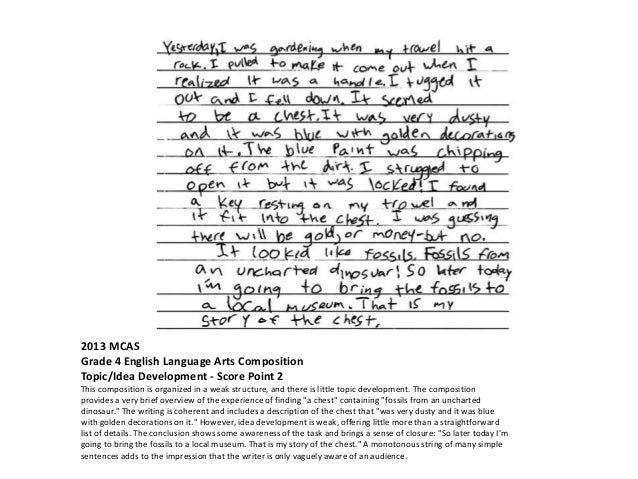 Yesterday, I was gardening when my trowel hit a
rock. I pulled to make it come out when I
realized it was a handle. I tugged it
out and I fell down. It seemed
to be a chest. It was very dusty
and it was blue with golden decorations
on it. The blue Paint was chipping
off from the dirt. I strugged to
open it but it was locked! I found
a key resting on my trowel and
it fit into the chest. I was gussing
there will be gold, or money-but no.
It lookid like fossils. Fossils from
an uncharted dinosuar! So later today
i'm going to bring the fossils to
a local museum. That is my
story of the chest.
2013 MCAS
Grade 4 English Language Arts Composition
Topic/Idea Development - Score Point 2
This composition is organized in a weak structure, and there is little topic development. The composition
provides a very brief overview of the experience of finding "a chest" containing "fossils from an uncharted
dinosaur." The writing is coherent and includes a description of the chest that "was very dusty and it was blue
with golden decorations on it." However, idea development is weak, offering little more than a straightforward
list of details. The conclusion shows some awareness of the task and brings a sense of closure: "So later today I'm
going to bring the fossils to a local museum. That is my story of the chest." A monotonous string of many simple
sentences adds to the impression that the writer is only vaguely aware of an audience.